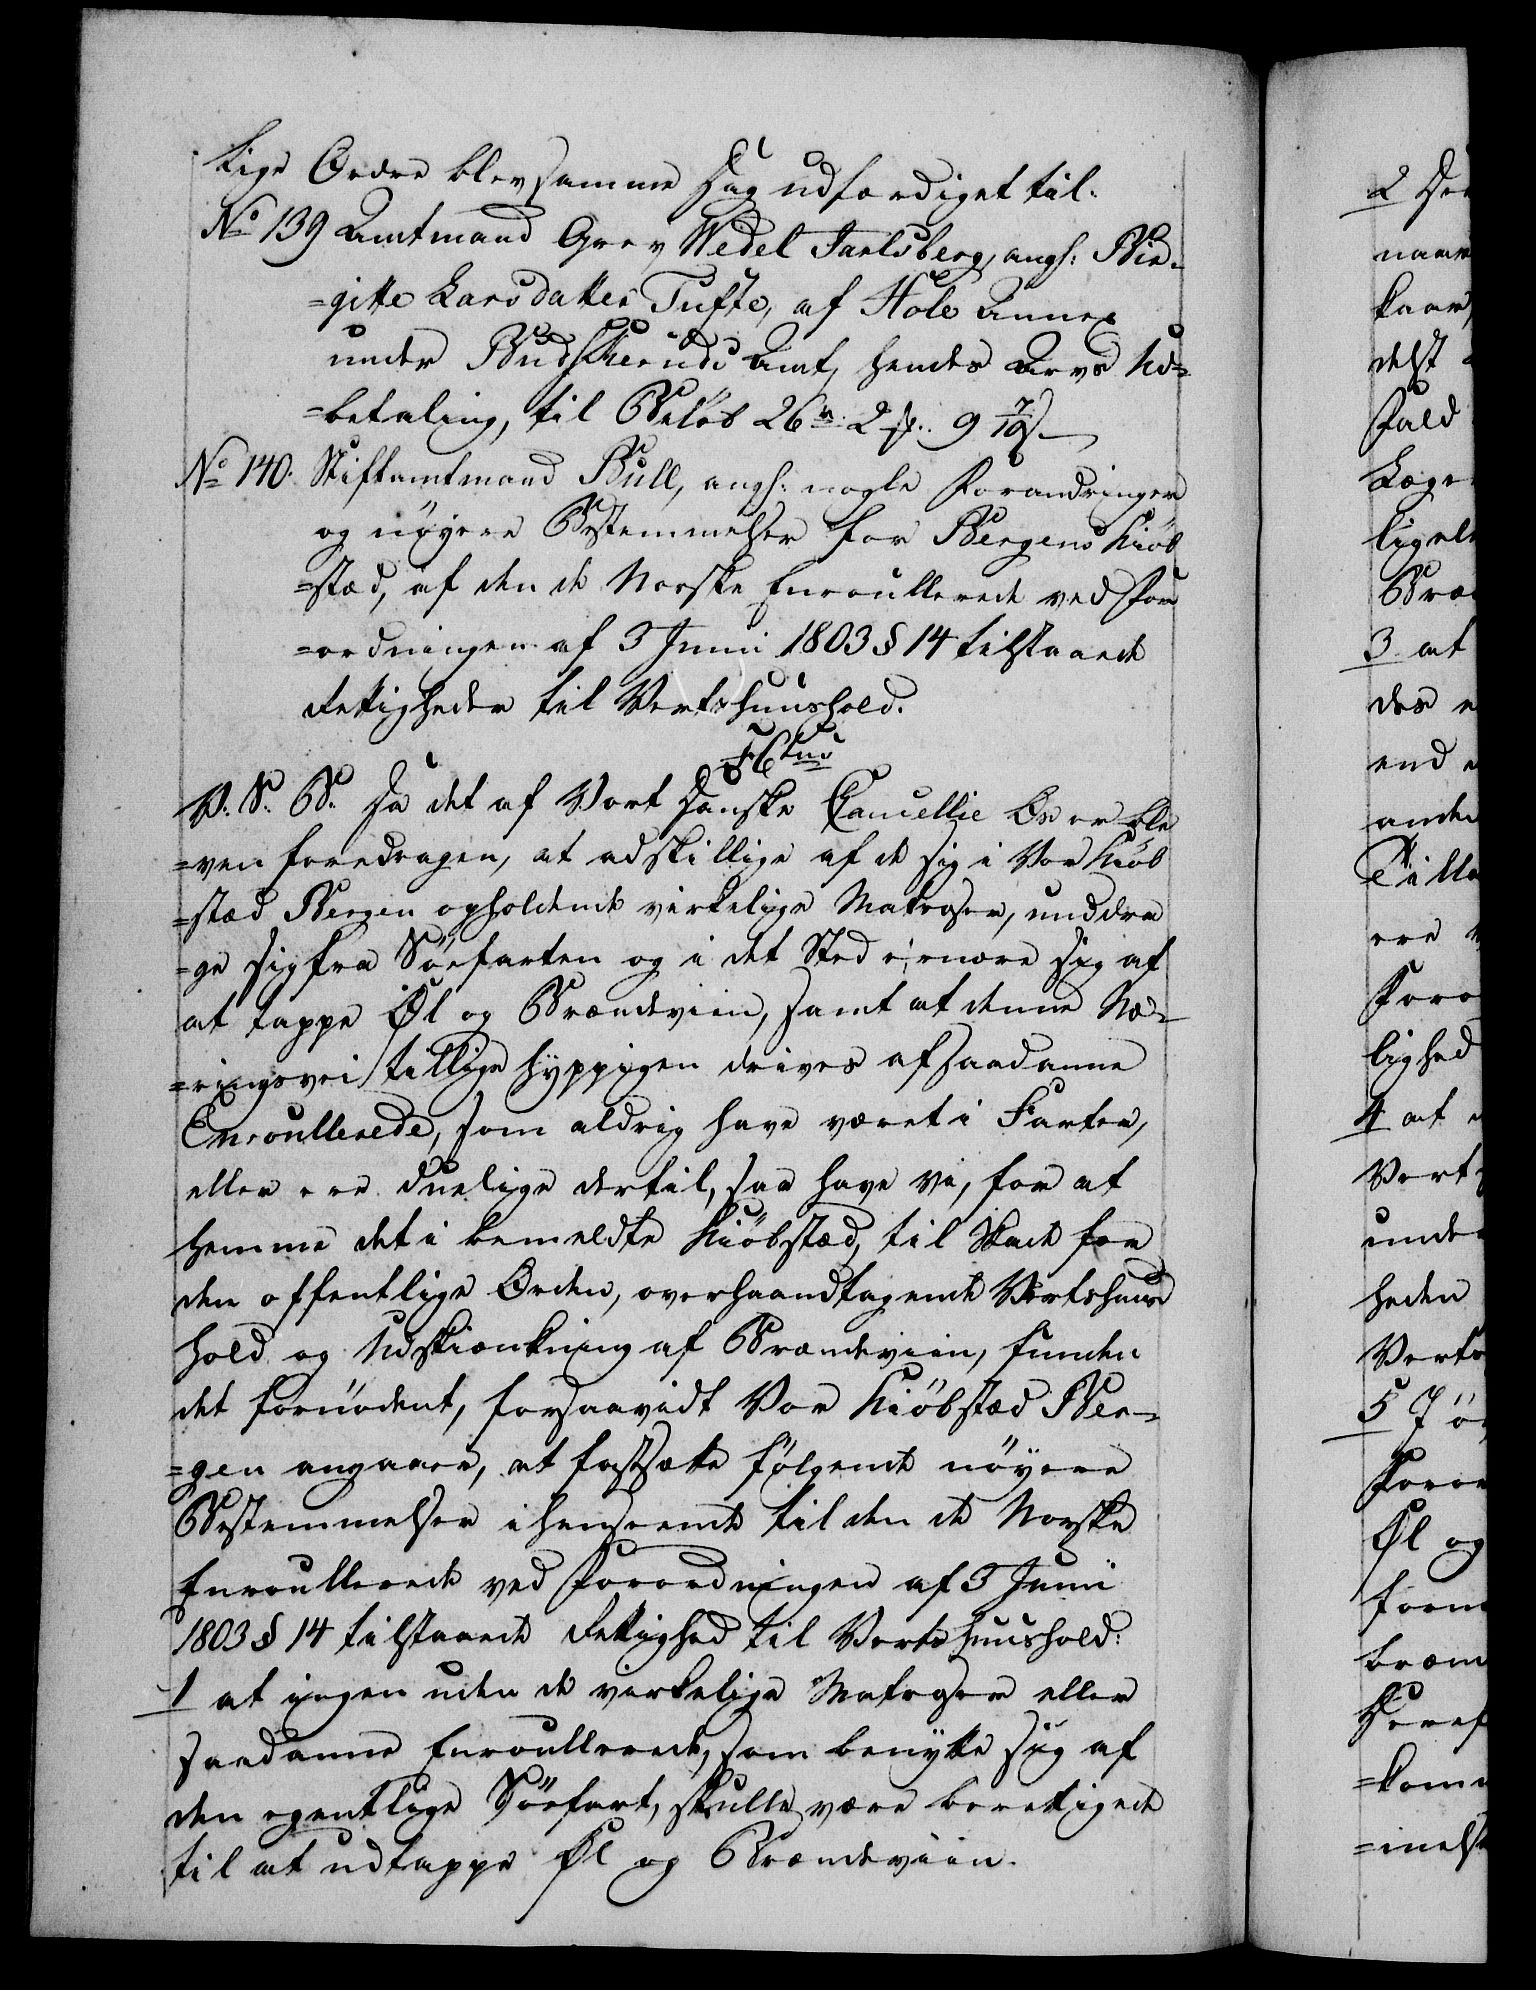 Lige Ordre blev samme Dag udfærdiget til.
No 139 Amtmand Grev Wedel Jarlsberg, angh: Bir-
=gitte Larsdatter Tufte, af Hole Annex
under Budskeruds Amt, hendes Arvs Ud-
=betaling, til Beløb 26 rd 2 ƒ. 9 7/10 s.
No 140. Stiftamtmand Bull, angh: nogle Forandringer
og nöyere Bestemmelser for Bergens Kiöb
=stæd, af den de Norske Enroullerede ved For
=ordningen af 3 Juni 1803 § 14 tilstaaede
Rettigheder til Vertshuushold.
V. S. G. Da det af Vort Danske Cancellie Os er ble
=ven foredragen, at adskillige af de sig i Vor Kiöb
=stæd Bergen opholdende virkelige Matroser, unddra
=ge sig fra Söefarten og i det Sted ernære sig af
at tappe Øl og Brændeviin, samt at denne Næ-
=ringsvei tillige hyppigen drives af saadanne
Enroullerede, som aldrig have været i Farten,
eller ere duelige dertil, saa have Vi, for at
hemme det i bemeldte Kiöbstæd, til Skade for
den offentlige Orden, overhaandtagende Vertshuus
hold og Udskiænkning af Brændeviin, funden
det fornödent, forsaavidt Vor Kiöbstæd Ber-
=gen angaaer, at fastsætte fölgende nöyere
Bestemmelser i henseende til den de Norske
Enroullerede ved Forordningen af 3 Juni
1803 § 14 tilstaaede Rettighed til Vertshuushold:
1 at ingen uden de virkelige Matroser eller
saadanne Enroullerede, som benytte sig af
den egentlige Söefart, skulle være berettigede
til at udtappe Øl og Brændeviin.